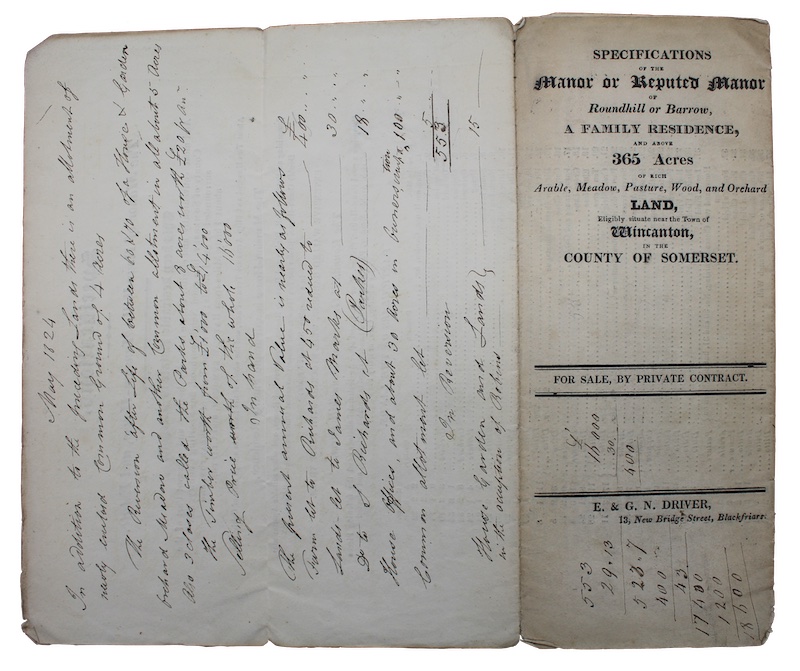 May 1824
In addition to the preceding Lands there is an allotment of
newly enclosed Common Ground of 4 acres
The Reversion after Life of between 60 & 70 of a House & Garden
orchard Meadow and another Common allotment in all about 5 Acres
Also 2 closes called the Parks about 8 acres worth £20 p an:
the Timber worth from £1000 to £1,400
Selling Price worth of the whole
In hand
The present annual Value is nearly as follows
Farm let to Richards at 450 reduced to £400 " "
Lands let to James Marks at 30 " "
Do to J Richards at (Parkes) 18 " "
House Offices, and about 30 Acres in 100 " "
Common allotment let 5
553
In Reversion
House Garden and Lands }
in the occupation of 15
SPECIFICATIONS
OF THE
Manor or Reputed Manor
OF
Roundhill or Barrow,
A FAMILY RESIDENCE,
AND ABOVE
365 Acres
OF RICH
Arable, Meadow, Pasture, Wood, and Orchard
LAND,
Eligibly situate near the Town of
Wincanton,
IN THE
COUNTY OF SOMERSET.
FOR SALE, BY PRIVATE CONTRACT.
£
30
400
E. & G. N. DRIVER,
13, New Bridge Street, Blackfriars.
553
29.13
523.7
400
43
1200